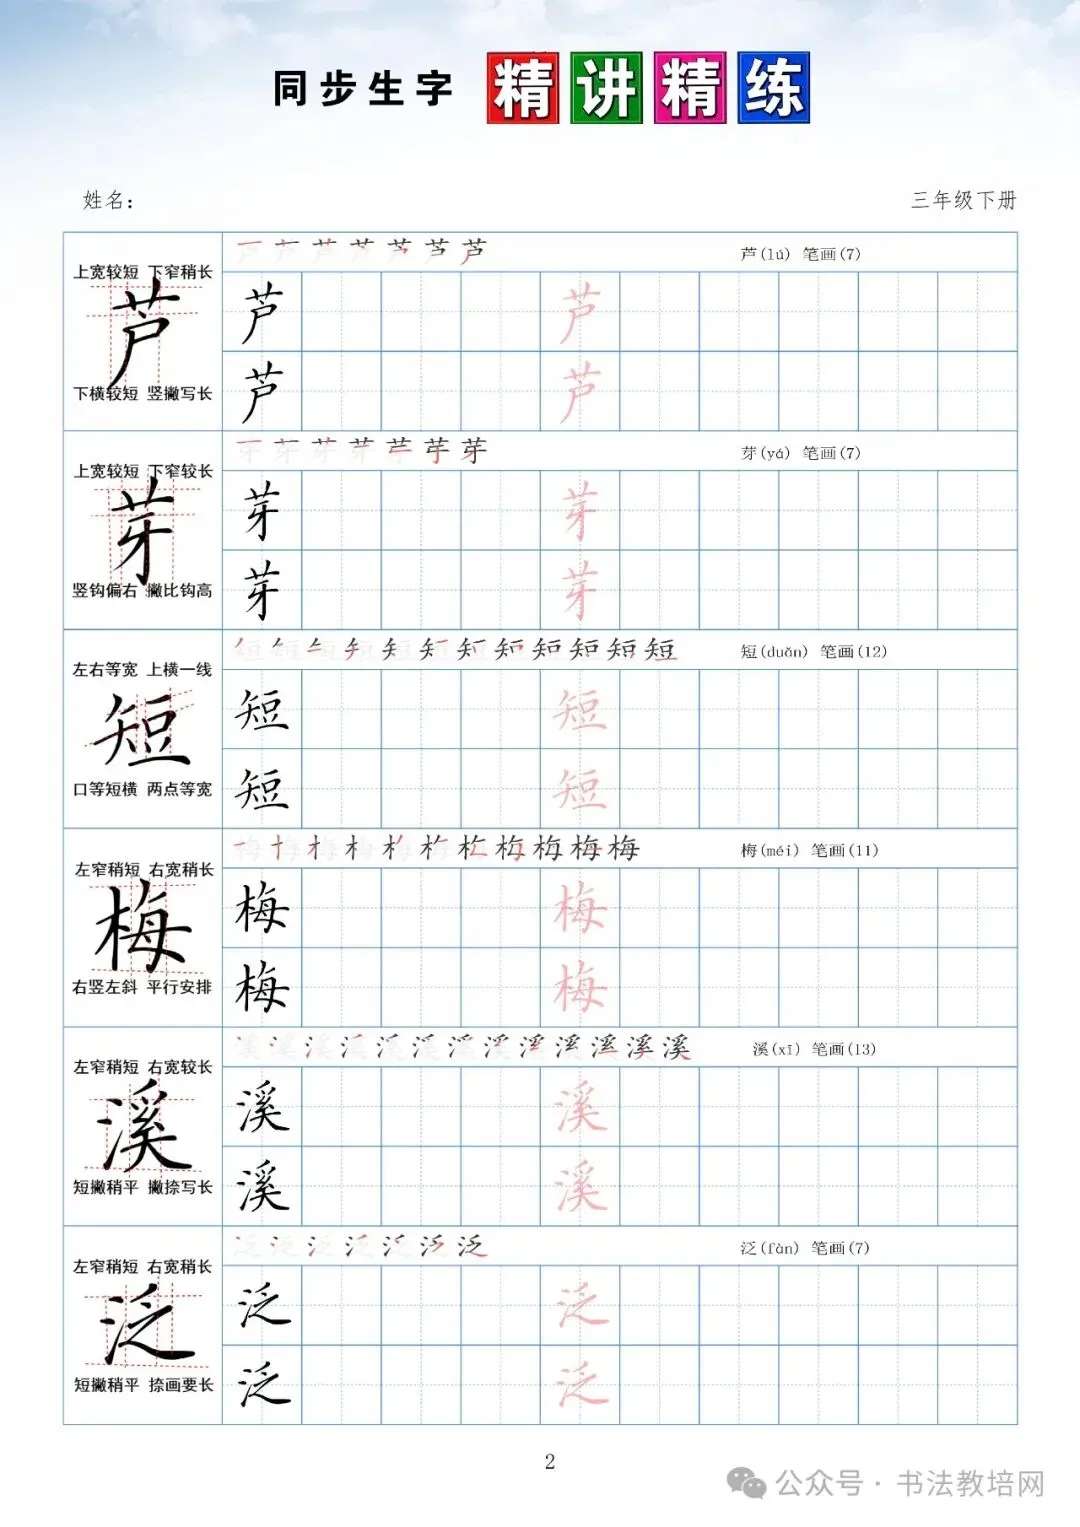 同步生字 精讲精练
姓名： 三年级下册
上宽较短 下窄稍长
芦
下横较短 竖撇写长
芦(lú) 笔画(7)
芦 芦
芦 芦
上宽较短 下窄较长
芽
竖钩偏右 撇比钩高
芽(yá) 笔画(7)
芽 芽
芽 芽
左右等宽 上横一线
短
口等短横 两点等宽
短(duǎn) 笔画(12)
短 短
短 短
左窄稍短 右宽稍长
梅
右竖左斜 平行安排
梅(méi) 笔画(11)
梅 梅
梅 梅
左窄稍短 右宽较长
溪
短撇稍平 撇捺写长
溪(xī) 笔画(13)
溪 溪
溪 溪
左窄稍短 右宽稍长
泛
短撇稍平 捺画要长
泛(fàn) 笔画(7)
泛 泛
泛 泛
2
公众号·书法教培网